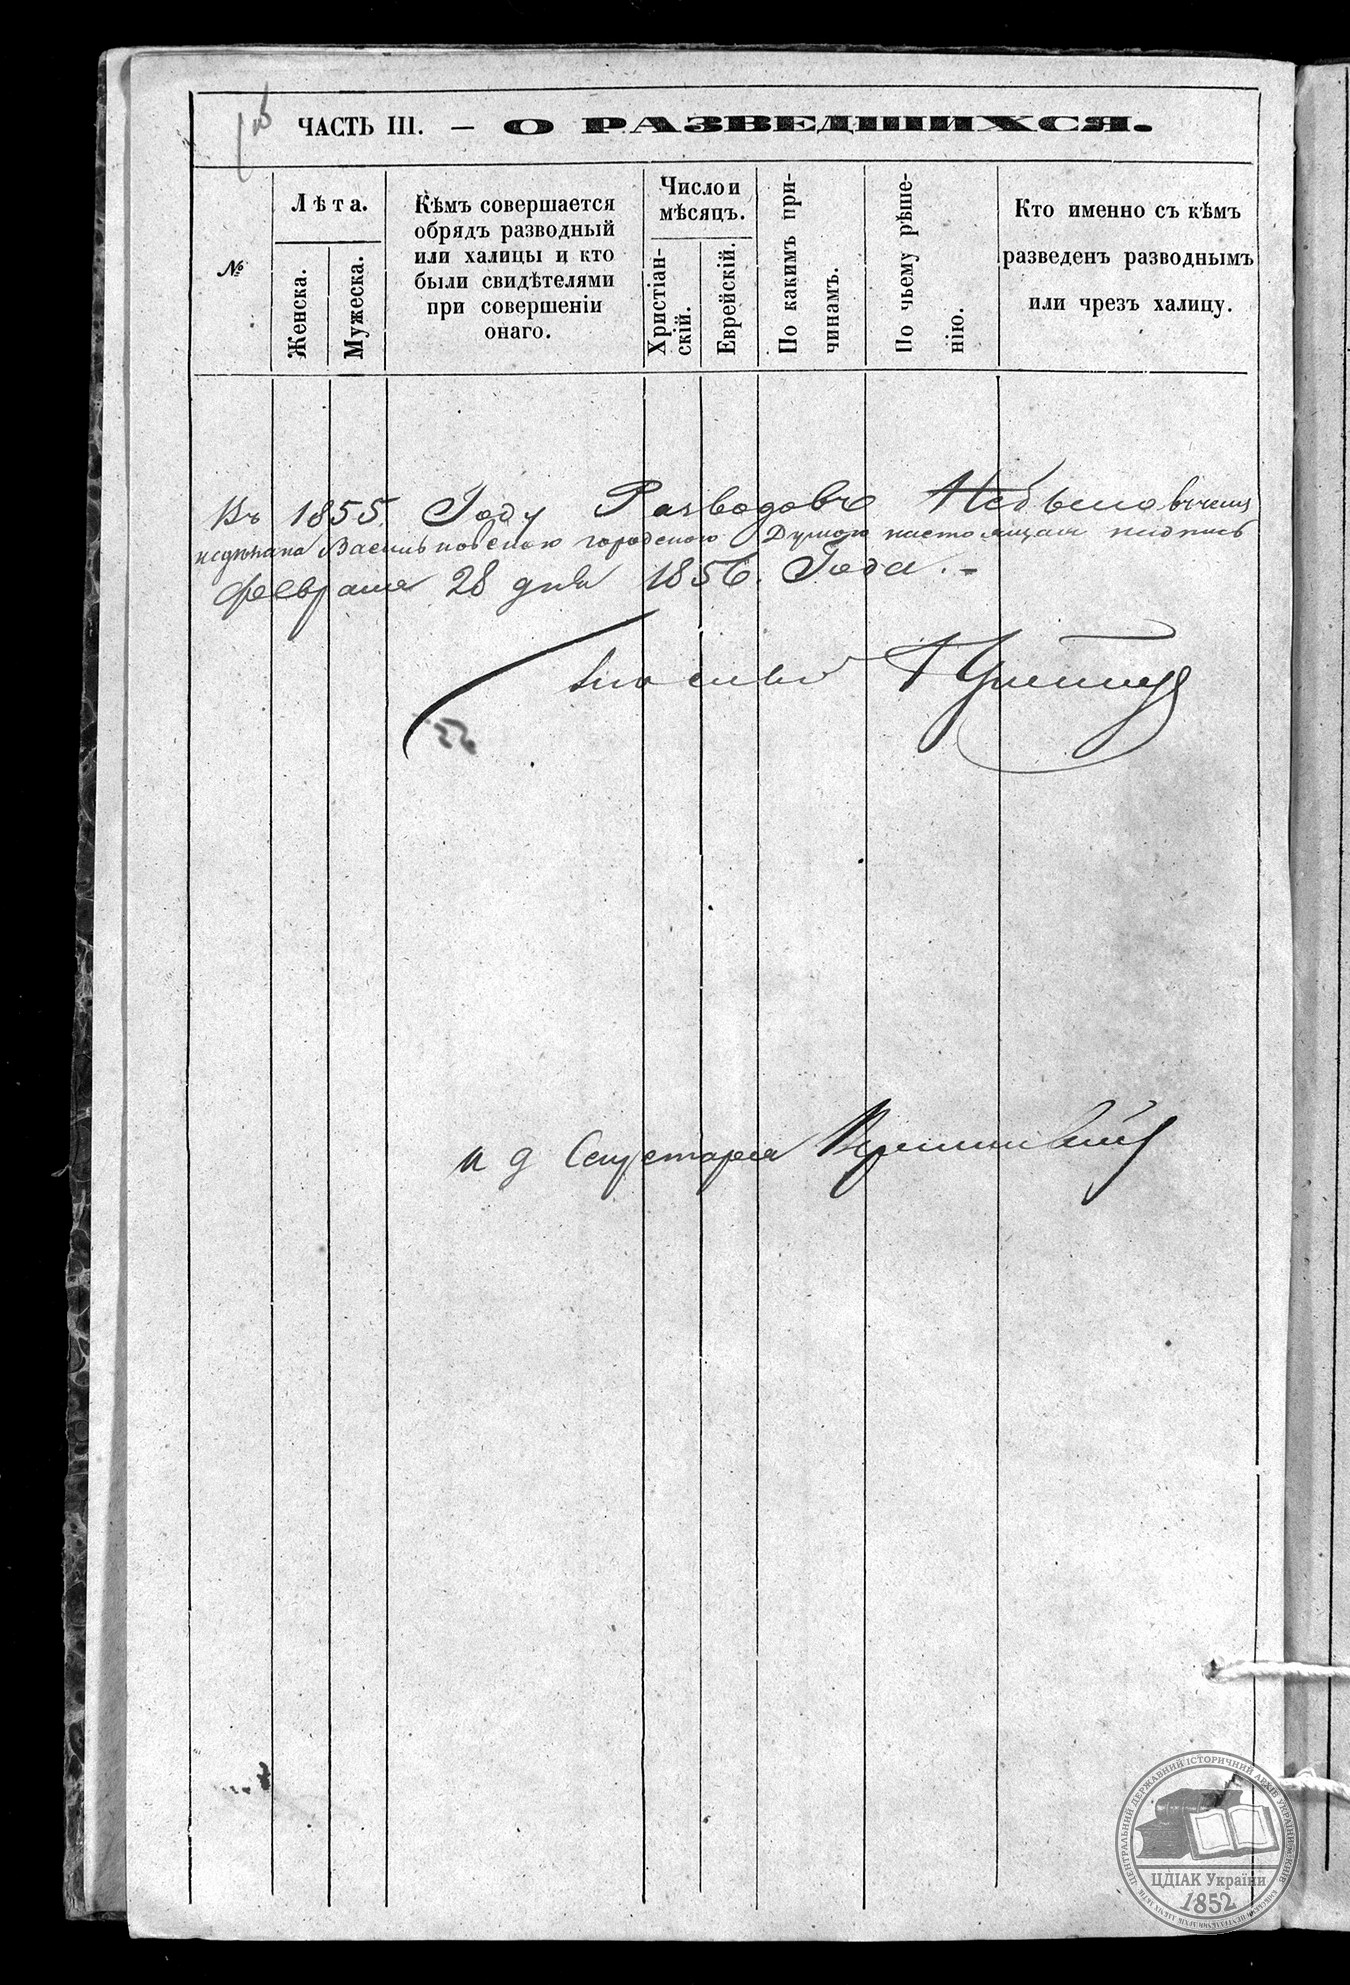 ЧАСТЬ III. — О РАЗВЕДШИХСЯ.
№
Лѣта.
Женска.
Мужеска.
Кѣмъ совершается
обрядъ разводный
или халицы и кто
были свидѣтелями
при совершеніи
онаго.
Число и
мѣсяцъ.
Христіан-
скій.
Еврейскій.
По какимъ при-
чинамъ.
По чьему рѣше-
нію.
Кто именно съ кѣмъ
разведенъ разводнымъ
или чрезъ халицу.
Въ 1855. Году Разводовъ Небыло въ чемъ
Васильковскою городскою Думою настоящая надпись
февраля 28 дня 1856. Года. -
и д Секретаря
ЦЕНТРАЛЬНИЙ ДЕРЖАВНИЙ ІСТОРИЧНИЙ АРХІВ УКРАЇНИ, М. КИЇВ
ЦДІАК України
1852